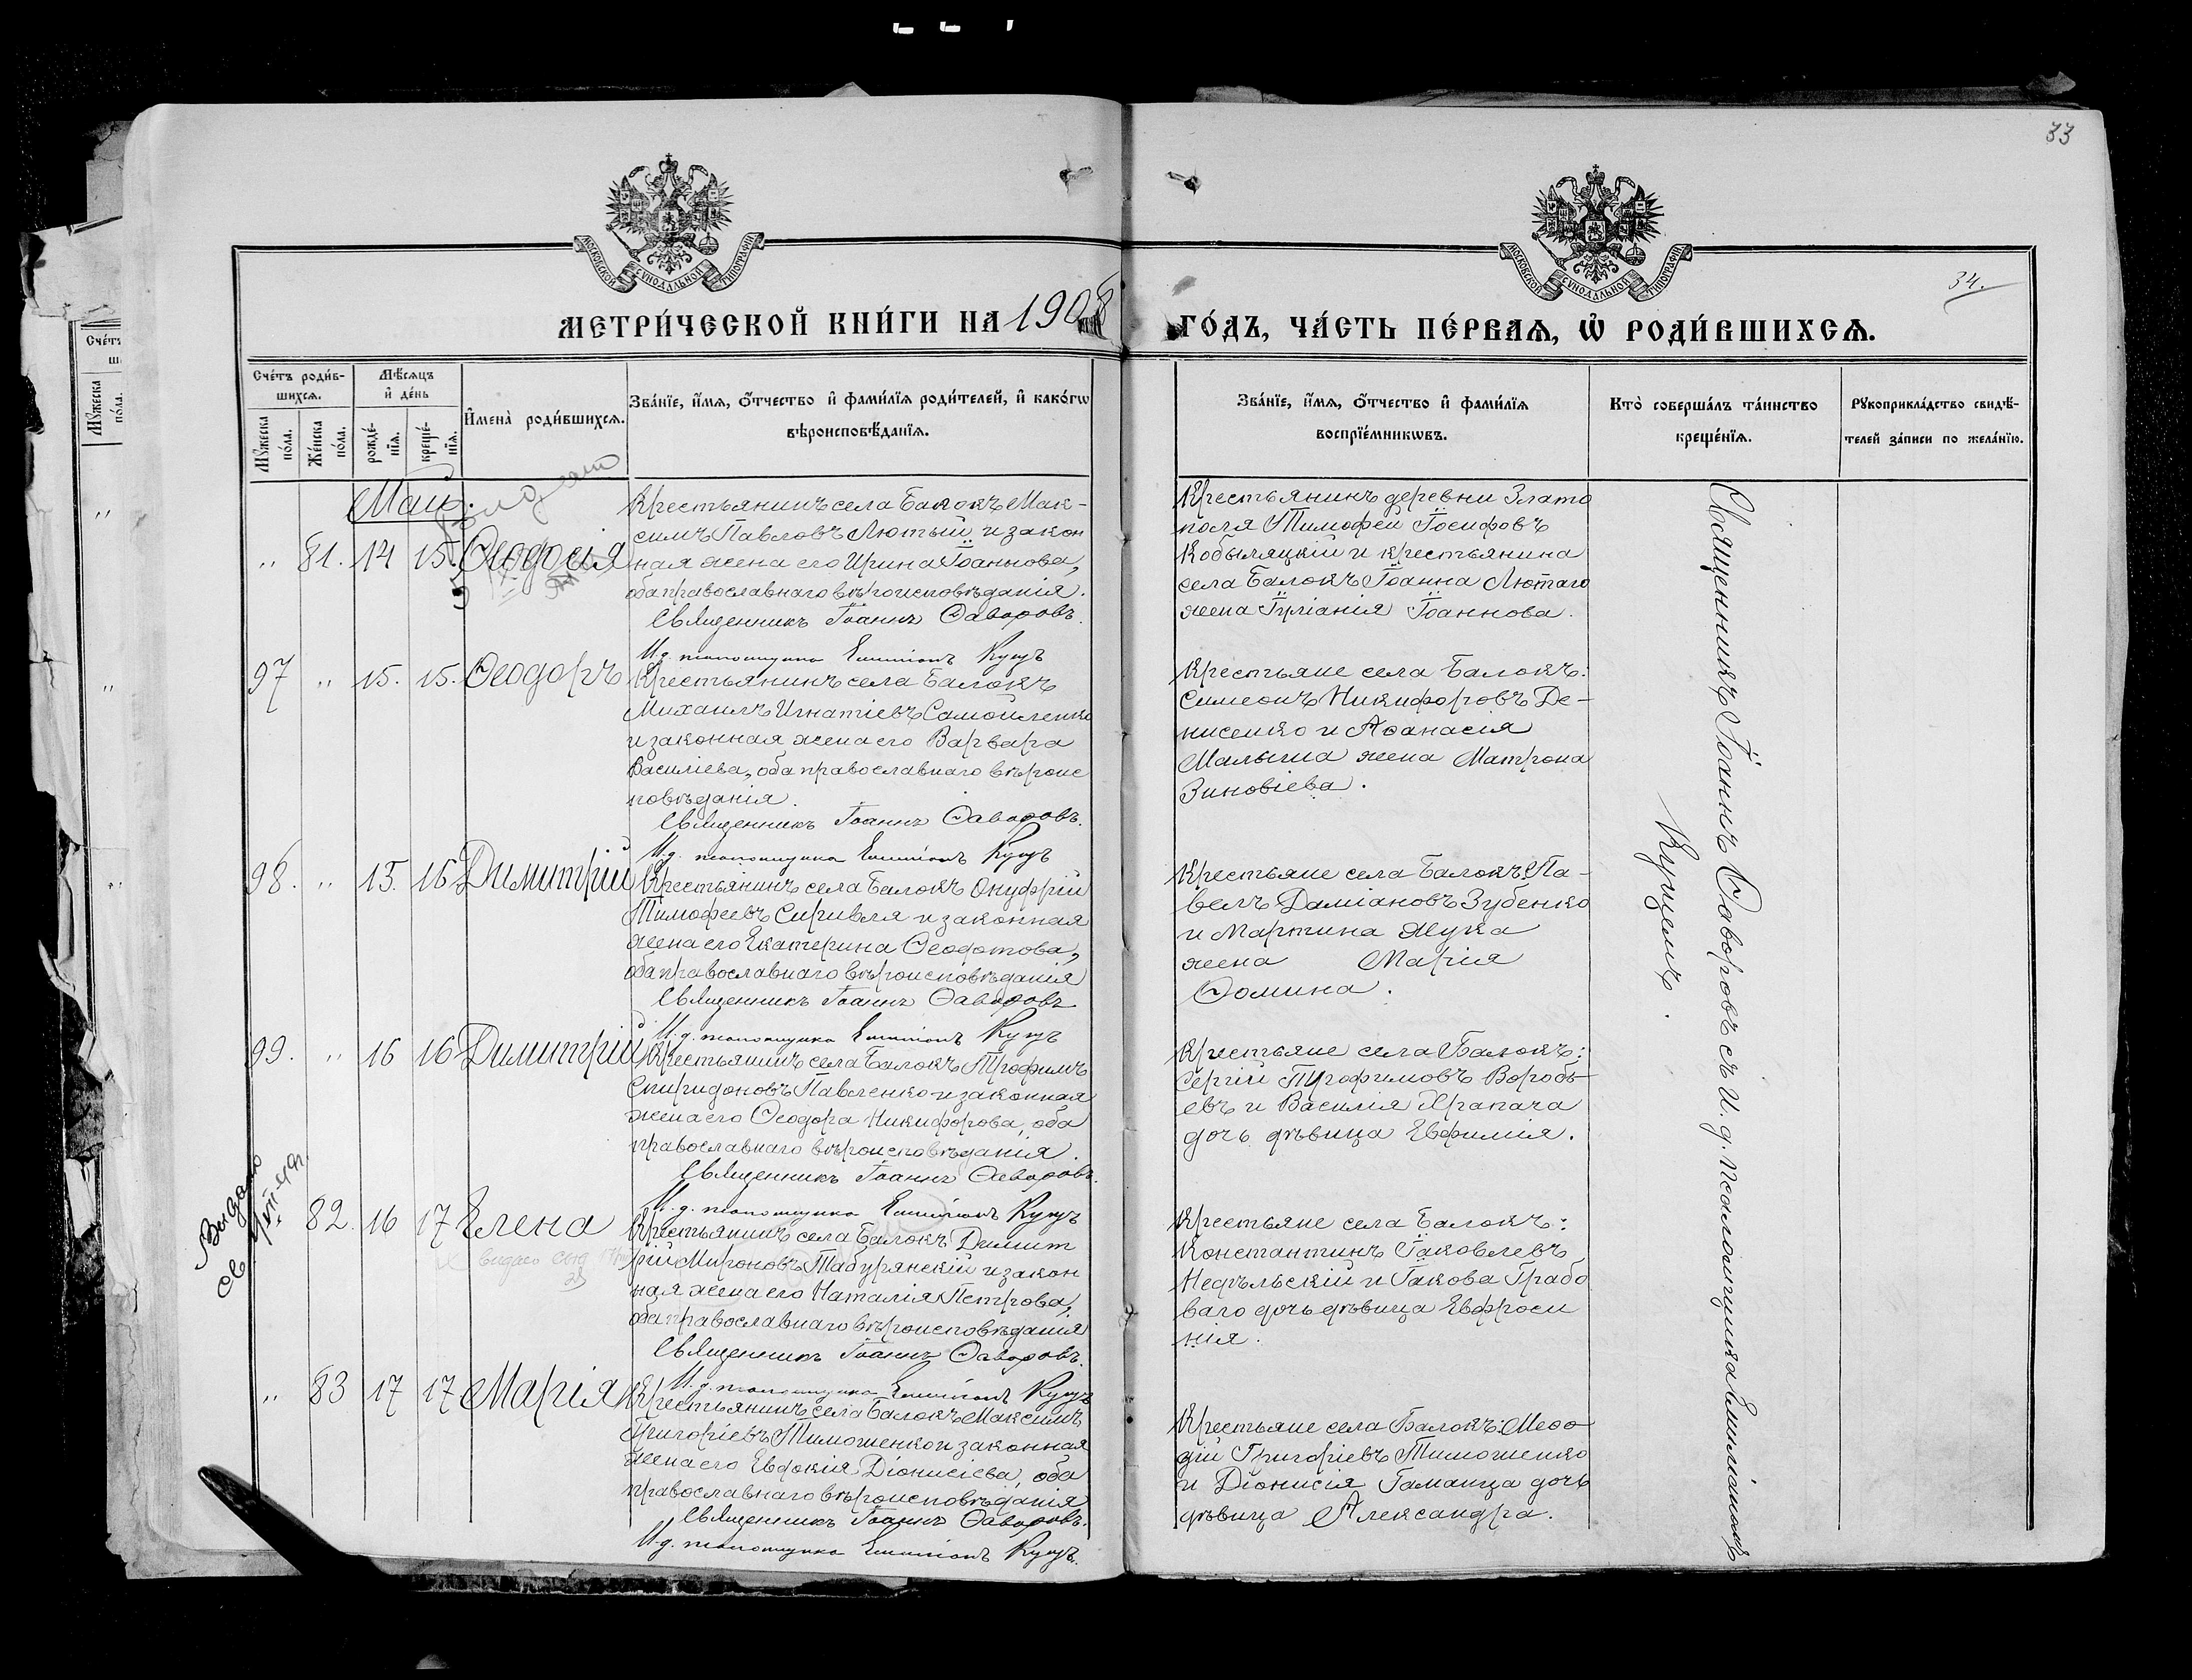 33
МОСКОВСКОЙ СѴНОДАЛЬНОЙ ТИПОГРАФІИ
МОСКОВСКОЙ СѴНОДАЛЬНОЙ ТИПОГРАФІИ
34.
МЕТРИ́ЧЕСКОЙ КНИ́ГИ НА 1908 ГО́ДЪ, ЧА́СТЬ ПЕ́РВАѦ, Ѡ҆ РОДИ́ВШИХСѦ.
Сче́тъ роди́в-
шихсѧ.
Мѣ́сѧцъ
и҆ де́нь
Мꙋ́жеска
по́ла.
Же́нска
по́ла.
рожде́-
нїѧ.
креще́-
нїѧ.
И҆мена̀ роди́вшихсѧ.
Зва́нїе, и҆́мѧ, ѻ҆́тчество и҆ фами́лїѧ роди́телей, и҆ како́гѡ
вѣроисповѣ́данїѧ.
Зва́нїе, и҆́мѧ, ѻ҆́тчество и҆ фами́лїѧ
воспрїе́мникѡвъ.
Кто̀ соверша́лъ та́инство
креще́нїѧ.
Рꙋкоприкла́дство свидѣ́-
телей за́писи по жела́нїю.
Май.
„ 81. 14 15. Ѳеодосія
Крестьянинъ села Балокъ Мак-
симъ Павловъ Лютый и закон
ная жена его Ирина Іоаннова,
оба православнаго вѣроисповѣданія.
Священникъ Іоаннъ Ѳаворовъ.
И.д. псаломщика Емиліанъ Куцъ
Крестьянинъ деревни Злато
поля Тимофей Іосифовъ
Кобыляцкій и крестьянина
села Балокъ Іоанна Лютаго
жена Іуліанія Іоаннова.
97 „ 15. 15. Ѳеодоръ
Крестьянинъ села Балокъ
Михаилъ Игнатіевъ Самойленко
и законная жена его Варвара
Василіева, оба православнаго вѣроис
повѣданія.
Священникъ Іоаннъ Ѳаворовъ.
И.д. псаломщика Емиліанъ Куцъ
Крестьяне села Балокъ:
Симеонъ Никифоровъ Де-
нисенко и Аѳанасія
Малыша жена Матрона
Зиновіева.
98. „ 15. 16 Димитрій
Крестьянинъ села Балокъ Онуфрій
Тимофеевъ Сиривля и законная
жена его Екатерина Ѳеодотова,
оба православнаго вѣроисповѣданія
Священникъ Іоаннъ Ѳаворовъ
И.д. псаломщика Емиліанъ Куцъ
Крестьяне села Балокъ: Па-
велъ Даміановъ Зубенко
и Мартина Жука
жена Марія
Ѳомина.
99. „ 16 16 Димитрій
Крестьянинъ села Балокъ Трофимъ
Спиридоновъ Павленко и законная
жена его Ѳеодора Никифорова, оба
православнаго вѣроисповѣданія.
Священникъ Іоаннъ Ѳаворовъ.
И.д. псаломщика Емиліанъ Куцъ
Крестьяне села Балокъ:
Сергій Трофимовъ Воробь-
евъ и Василія Храпача
дочь дѣвица Евфимія.
Выдано
82. 16 17 Елена
Крестьянинъ села Балокъ Димит
рій Мироновъ Табурянскій и закон
ная жена его Наталія Петрова,
оба православнаго вѣроисповѣданія
Священникъ Іоаннъ Ѳаворовъ.
И.д. псаломщика Емиліанъ Куцъ
Крестьяне села Балокъ:
Константинъ Іаковлевъ
Недѣльскій и Іакова Грабо
ваго дочь дѣвица Евфроси
нія.
„ 83 17 17 Марія
Крестьянинъ села Балокъ Максимъ
Григоріевъ Тимошенко и законная
жена его Евдокія Діонисіева, оба
православнаго вѣроисповѣданія
Священникъ Іоаннъ Ѳаворовъ.
И.д. псаломщика Емиліанъ Куцъ.
Крестьяне села Балокъ: Меѳо
дій Григоріевъ Тимошенко
и Діонисія Гаманца дочь
дѣвица Александра.
Священникъ Іоаннъ Ѳаворовъ съ И. д. псаломщика Емиліаномъ
Куцемъ.